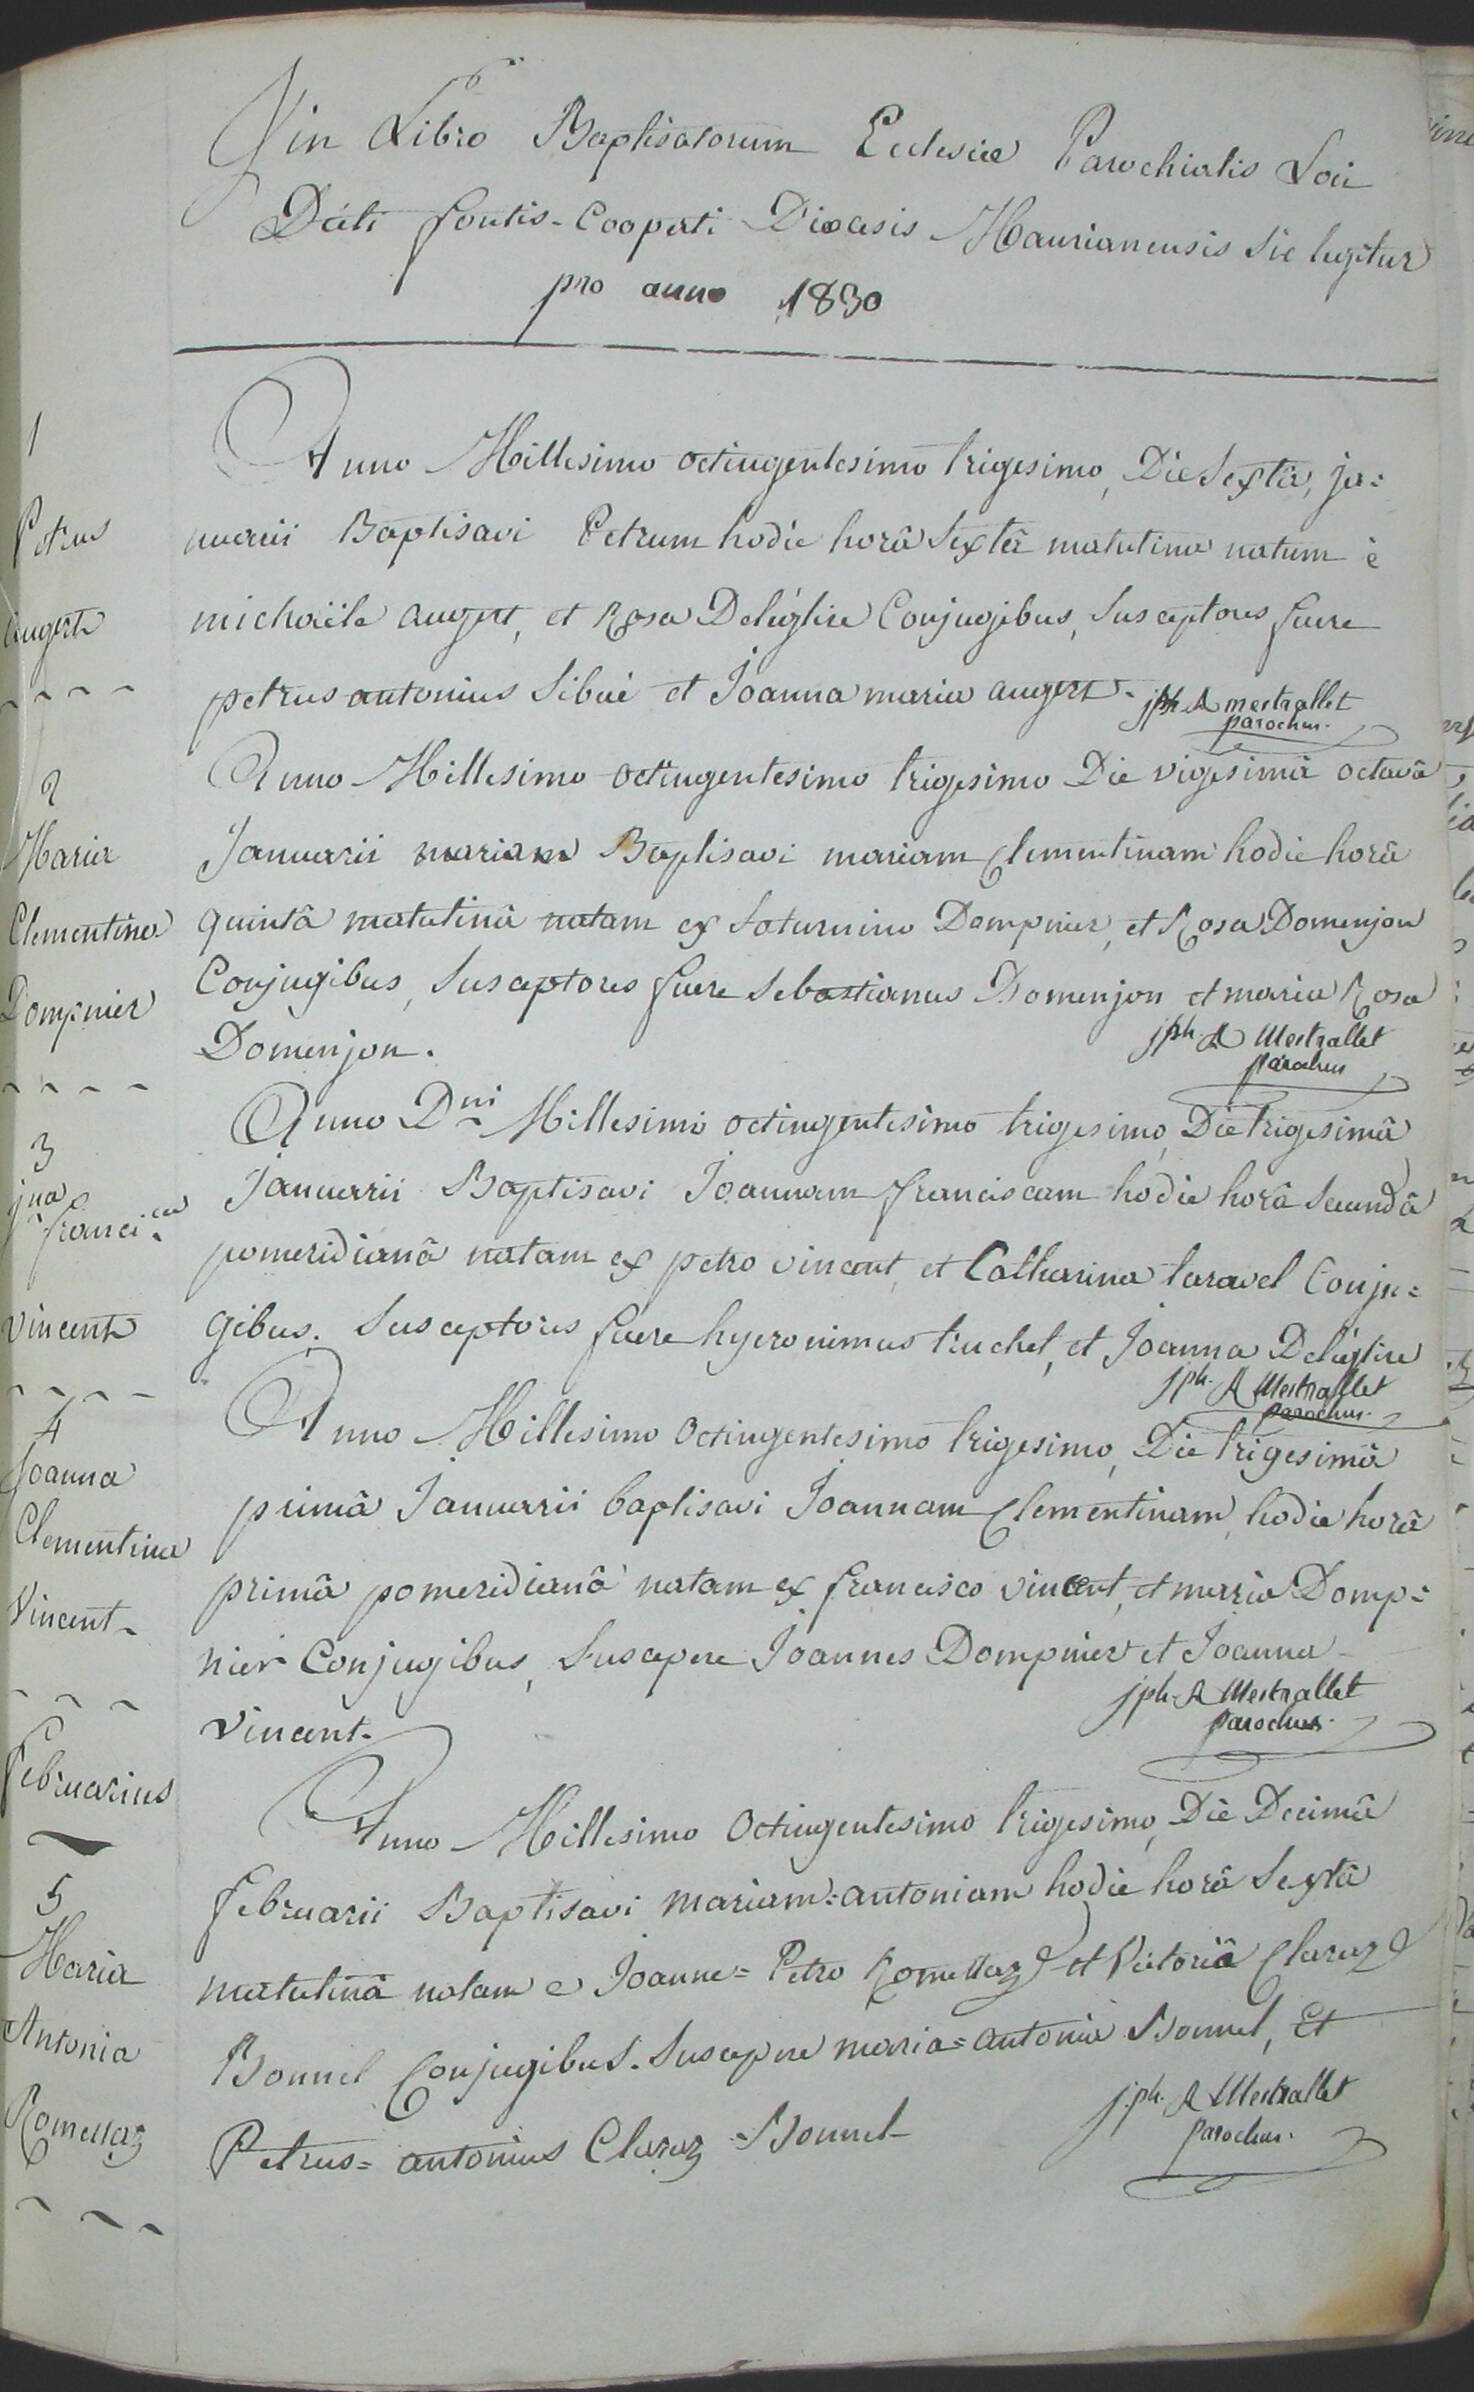 in Libro Baptisatorum Ecclesiæ Parochialis Loci
Dicti fontis-Cooperti Diœcesis Maurianensis sic legitur
pro anno 1830
1
Petrus
augert
Anno Millesimo octingentesimo trigesimo, Die Sextâ, ja=
nuarii Baptisavi Petrum hodie horâ Sextâ matutinâ natum è
michaële augert, et Rosa Deléglise Conjugibus, Susceptores fuere
petrus antonius Sibué et Joanna maria augert. jph A mestrallet
parochus.
2
Maria
Clementina
Dompnier
Anno Millesimo octingentesimo trigesimo Die vigesimâ octavâ
Januarii mariam Baptisavi mariam Clementinam hodie horâ
quintâ matutinâ natam ex Saturnino Dompnier, et Rosa Domenjon
Conjugibus, Susceptores fuere Sebastianus Domenjon et maria Rosa
Domenjon. jph. A Mestrallet
parochus
3
jna
francica
vincent
Anno Dni Millesimo octingentesimo trigesimo, Die trigesimâ
Januarii Baptisavi Joannam franciscam hodie horâ Secundâ
pomeridianâ natam ex petro vincent, et Catharina taravel Conju=
gibus. Susceptores fuere hyeronimus truchet, et Joanna Deléglise
jph. A Mestrallet
parochus.
4
Joanna
Clementina
Vincent
Anno Millesimo Octingentesimo trigesimo, Die trigesimâ
primâ Januarii baptisavi Joannam Clementinam, hodie horâ
primâ pomeridianâ natam ex francisco vincent, et maria Domp=
nier Conjugibus, Suscepere Joannes Dompnier et Joanna
vincent. jph. A Mestrallet
parochus.
Februarius
5
Maria
Antonia
Romettaz
Anno Millesimo Octingentesimo trigesimo, Die Decimâ
februarii Baptisavi mariam=antoniam hodie horâ Sextâ
matutinâ natam e Joanne=Petro Romettaz et Victoriâ Claraz
Bonnel Conjugibus. Suscepere maria=antonia Bonnel, Et
Petrus=antonius Claraz Bonnel jph. A Mestrallet
parochus.